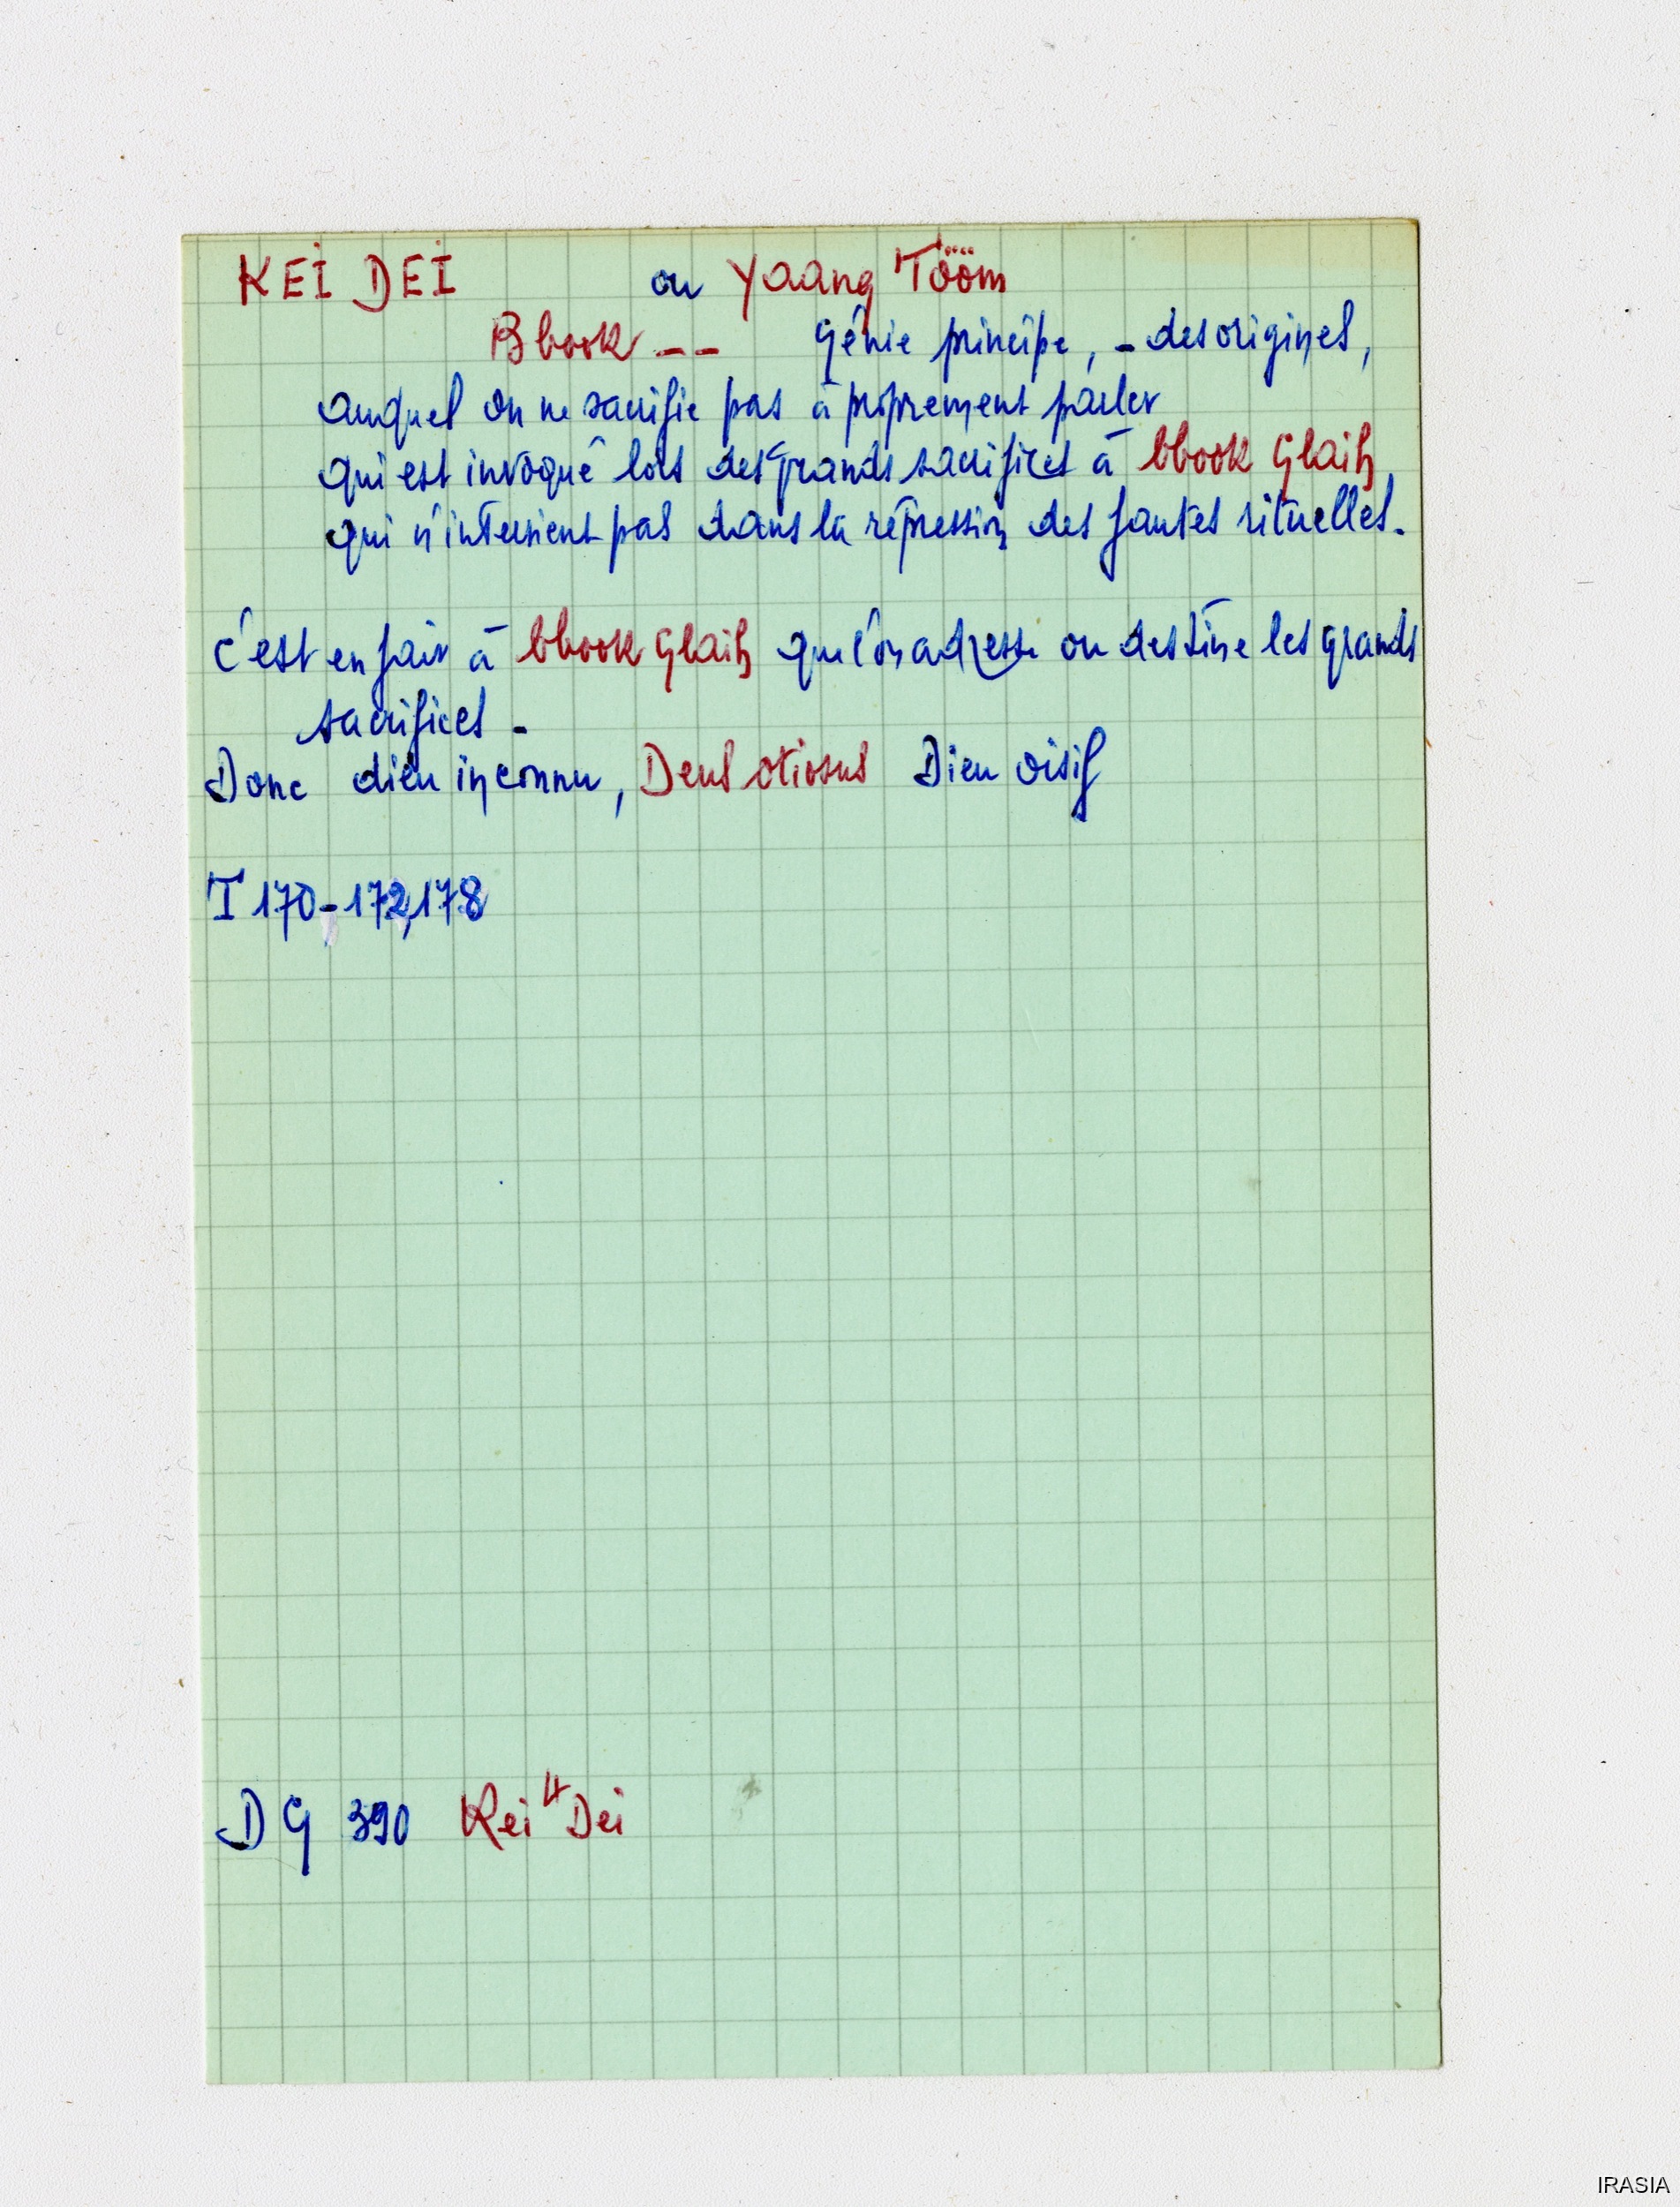 KEI DEI ou Yaang Tööm
Bbook -- Génie principe, - des origines,
auquel on ne sacrifie pas à proprement parler
qui est invoqué lors des grands sacrifices à bbook Glaih
qui n'intervient pas dans la répression des fautes rituelles.
c'est en fait à bbook Glaih que l'on adresse ou destine les grands
sacrifices -
Donc dieu inconnu, Deus otiosus Dieu oisif
T 170-172,178
DG 390 Kei Dei
IRASIA